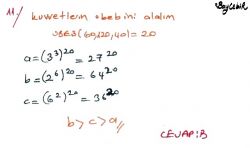 11/ kuvvetlerin obebini alalım
OBEB(60,120,40) = 20
a = (3³)²⁰ = 27²⁰
b = (2⁶)²⁰ = 64²⁰
c = (6²)²⁰ = 36²⁰
b > c > a //
CEVAP: B